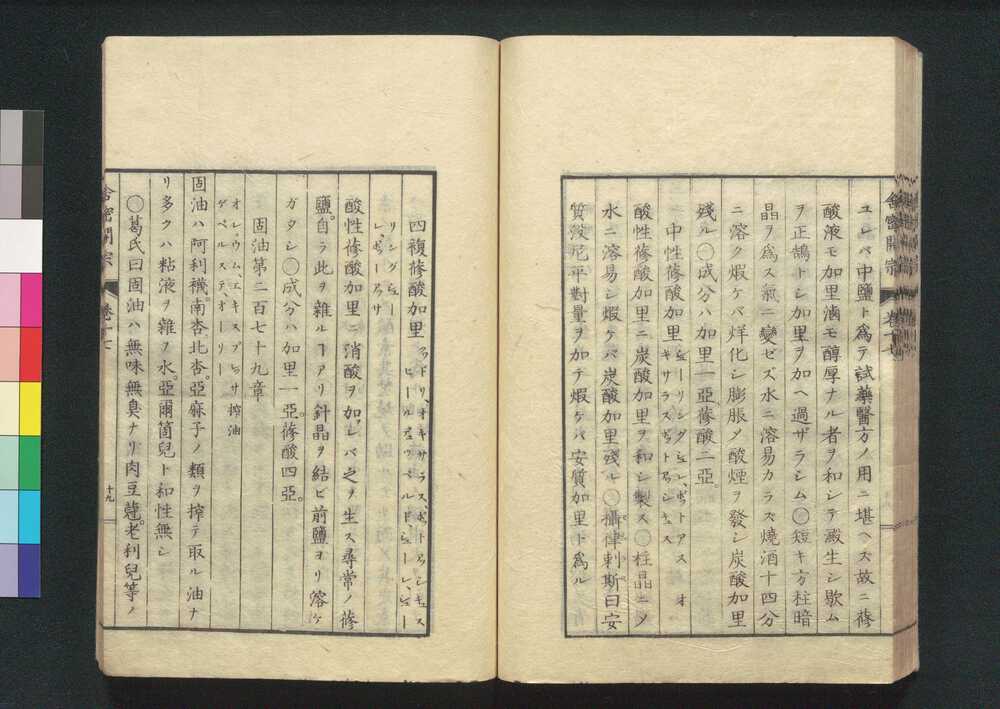 ユレバ中鹽ト爲テ試藥醫方ノ用ニ堪ヘズ故ニ蓚
酸液モ加里滷モ醇厚ナル者ヲ和シテ澱生シ歇ム
ヲ正鵠トシ加里ヲ加ヘ過ザラシム◯短キ方柱暗
晶ヲ爲ス氣ニ變ゼズ水ニ溶易カラズ燒酒十四分
ニ溶ク煆ケバ烊化シ膨脹メ酸煙ヲ發シ炭酸加里
殘ル◯成分ハ加里一亞蓚酸二亞。
二中性蓚酸加里
酸性蓚酸加里ニ炭酸加里ヲ和シ製ス◯柱晶ニメ
水ニ溶易シ煆ケバ炭酸加里殘ル◯攝律刺斯曰安
質沒尼平對量ヲ加テ煆ケバ安質加里ト爲ル
舍密開宗 卷十七
四複蓚酸加里
リングシュー
レ、ポターアサ
酸性蓚酸加里ニ消酸ヲ加レバ之ヲ生ス尋常ノ蓚
鹽自ラ此ヲ雜ルヿアリ針晶ヲ結ビ前鹽ヨリ溶ケ
ガタシ◯成分ハ加里一亞。蓚酸四亞。
固油第二百七十九章
オレウム、エキスプレッサ 搾油
ゲペルステ、オーリー
固油ハ阿利襪南杏北杏。亞麻子ノ類ヲ搾テ取ル油ナ
リ多クハ粘液ヲ雜ヲ水亞爾箇兒ト和性無シ
◯葛氏曰固油ハ無味無臭ナリ肉豆蔻。老利兒等ノ
舍密開宗 卷十七 十九